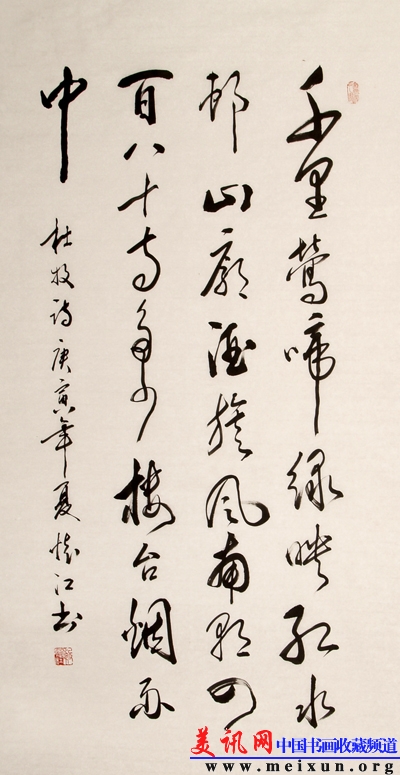 千里鶯啼绿映红水
邨山廓酒旗风南朝四
百八十寺多少楼台烟雨
中
杜牧诗庚寅年夏江书
美讯网 中国书画收藏频道
www.meixun.org